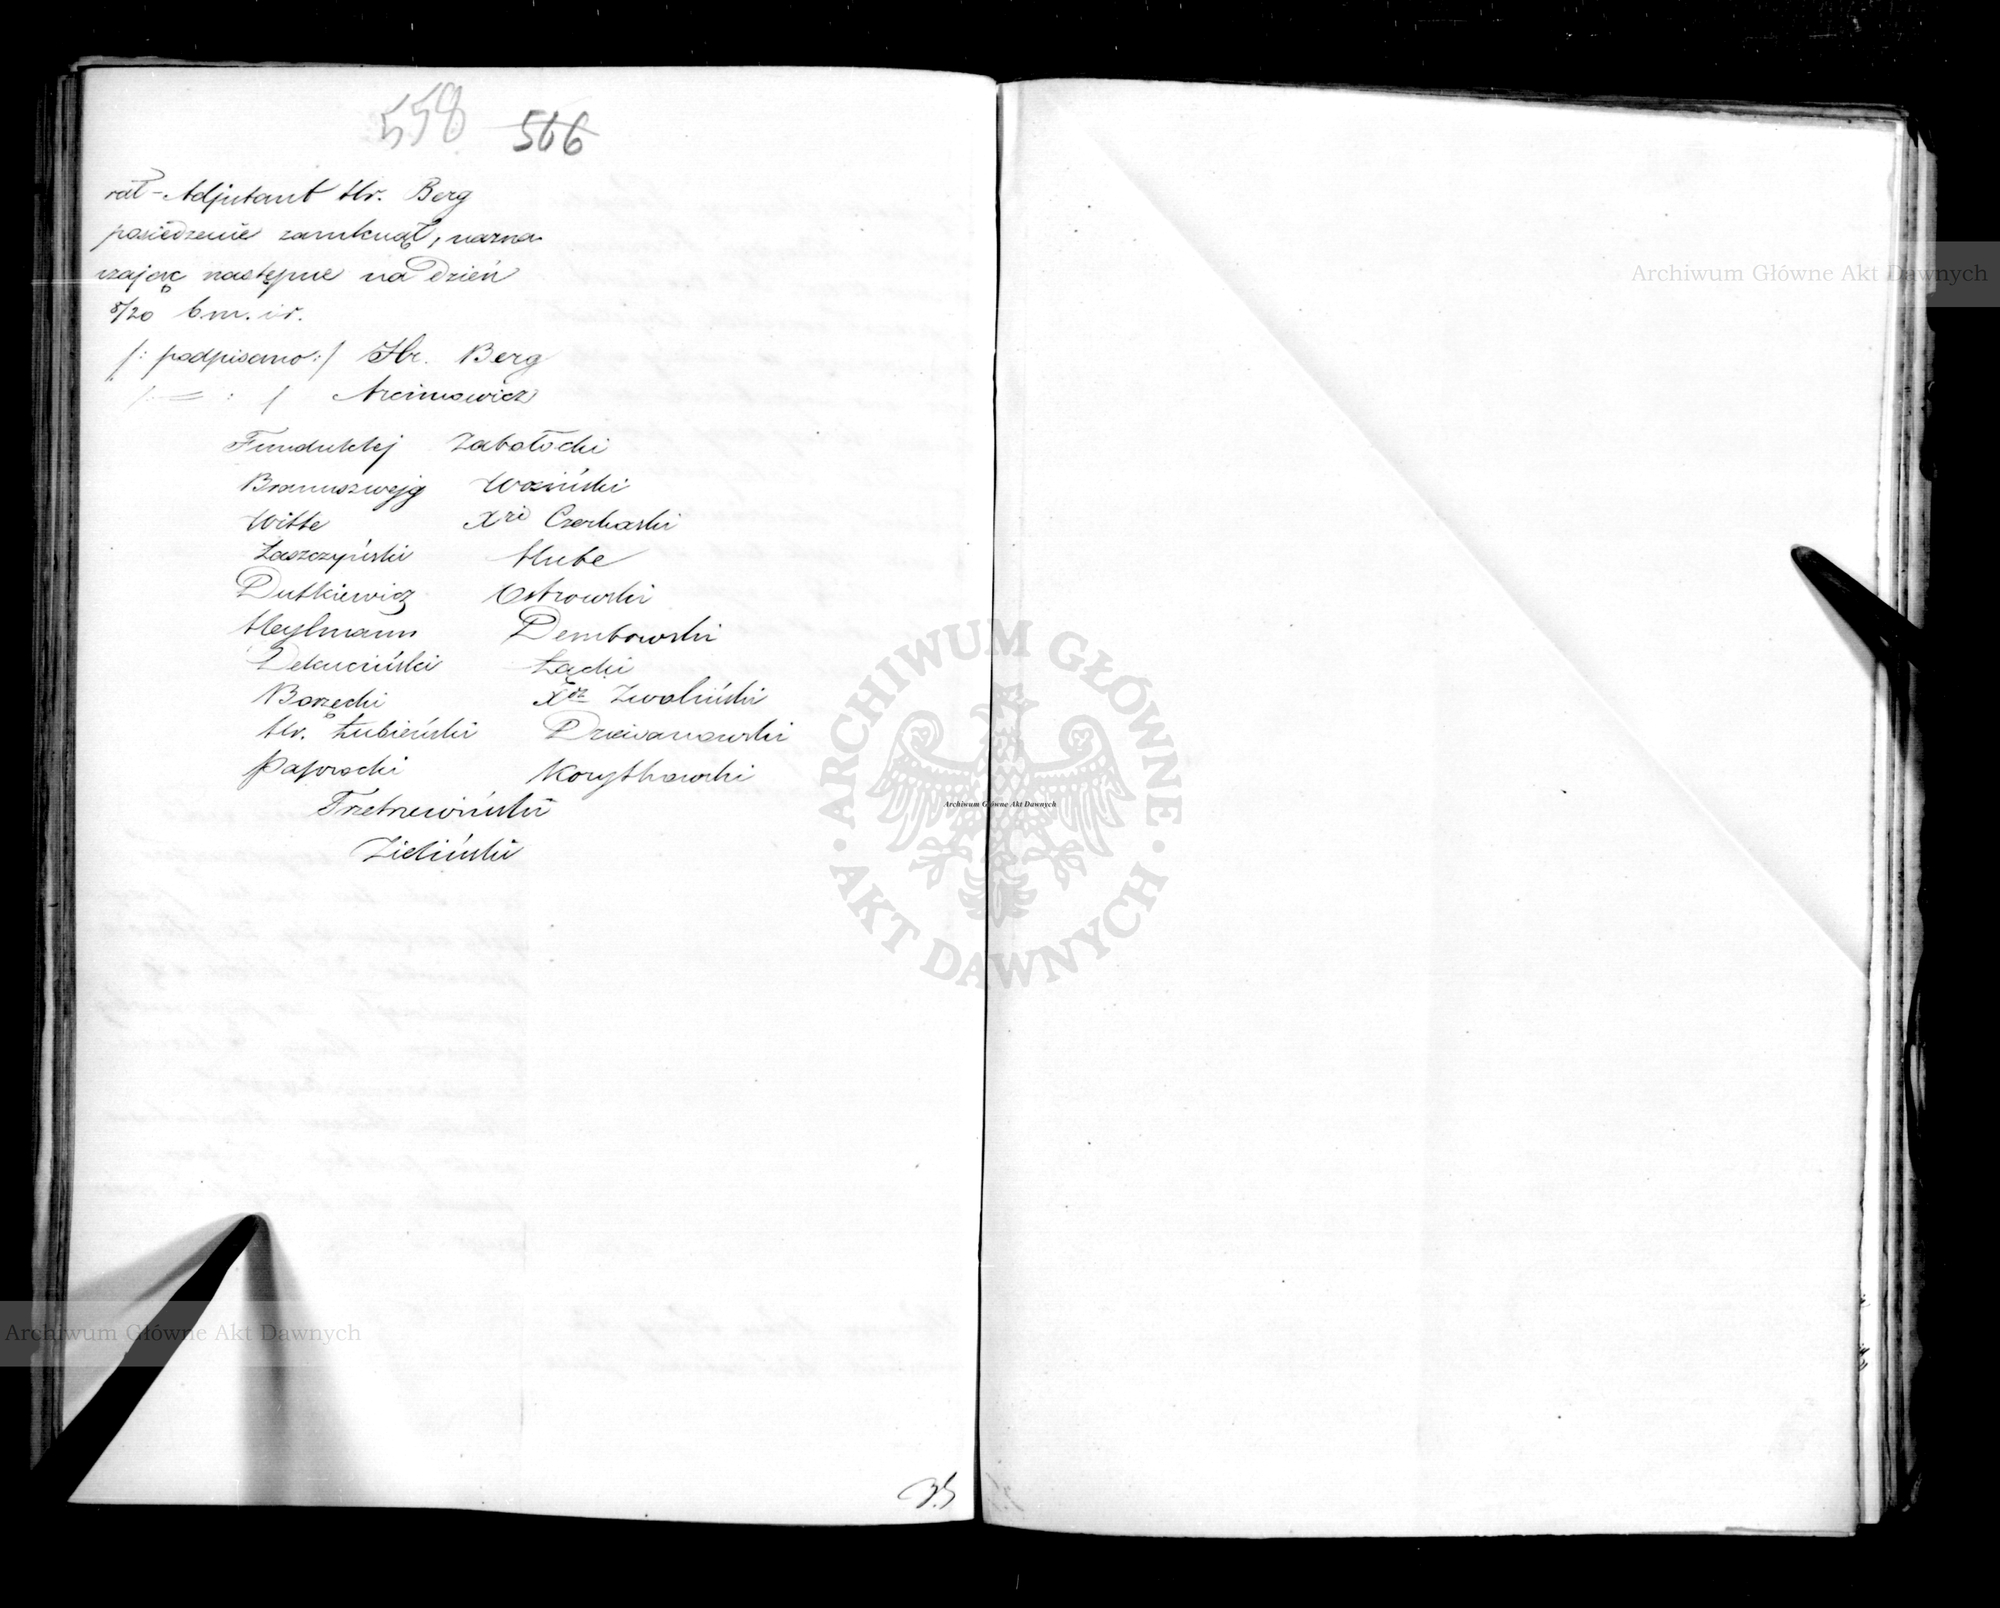 558 566
rał-Adjutant Hr. Berg
posiedzenie zamknął, nazna-
czając następne na dzień
8/20 b m. i r.
/: podpisano :/ Hr. Berg
/: = :/ Arcimowicz
Fundukklej Zabołocki
Braunszwejg Woziński
Witte Xże Czerkaski
Łaszczyński Hube
Dutkiewicz Ostrowski
Heylmann Dembowski
Dekuciński Łącki
Borzęcki Xdz Zwoliński
Hr. Łubieński Dziewanowski
Paprocki Korytkowski
Trzetrzewiński
Zieliński
35
Archiwum Główne Akt Dawnych
ARCHIWUM GŁÓWNE AKT DAWNYCH
Archiwum Główne Akt Dawnych
Archiwum Główne Akt Dawnych